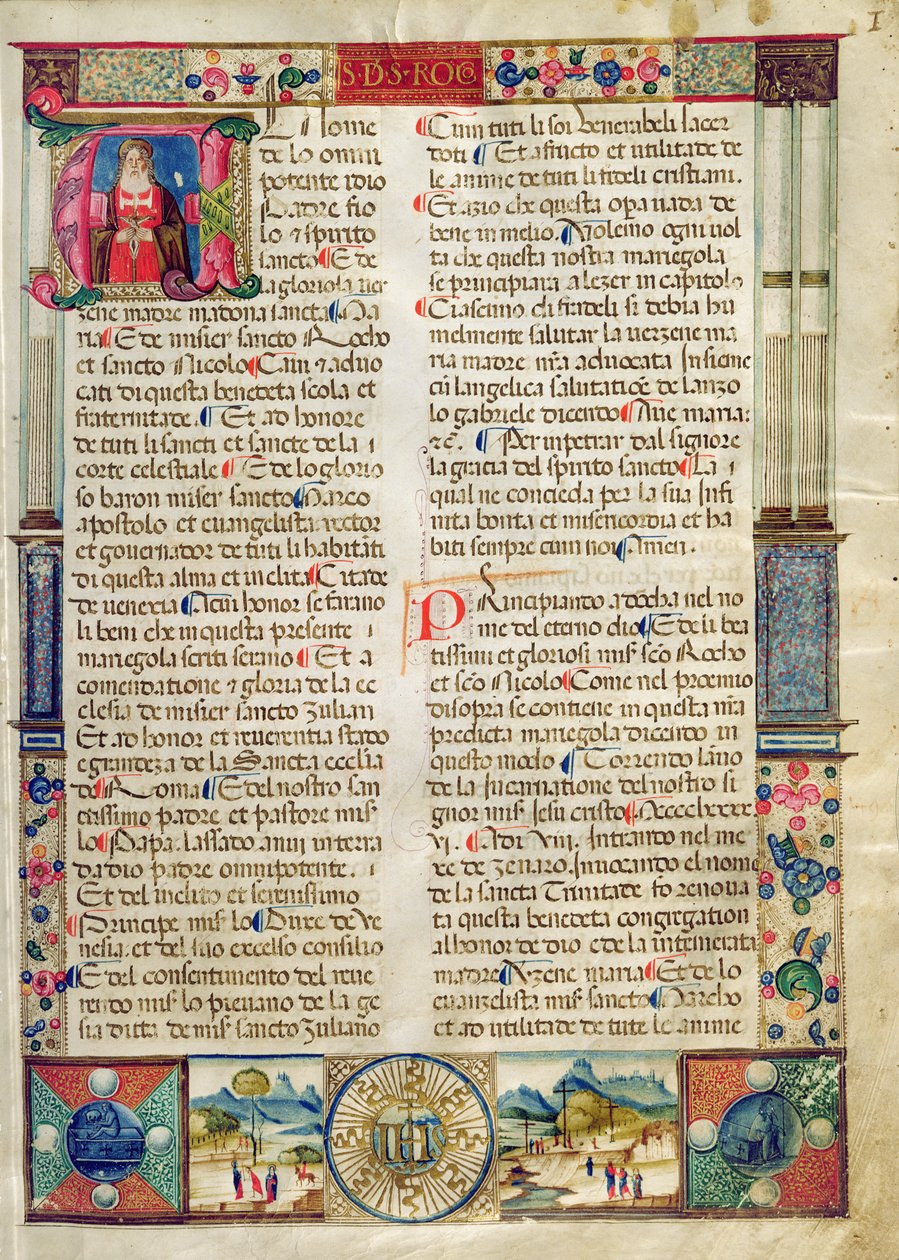 1
S·D·S·ROCO
Al nome
de lo omni
potente idio
Padre fio
lo ⁊ spirito
sancto E de
la gloriosa ver
zene madre madona sancta Ma
ria E de misier sancto Rocho
et sancto Nicolo Cam ⁊ advo
cati di questa benedeta scola et
fraternitade. Et ad honore
de tuti li sancti et sancte de la
corte celestiale E de lo glorio
so baron miser sancto Marco
apostolo et evangelista rector
et governador de tuti li habitāti
di questa alma et inclita Citade
de venexia Acui honor se farano
li beni che in questa presente
mariegola scriti serano Et a
comendatione ⁊ gloria de la ec
clesia de misier sancto Zulian
Et ad honor et reverentia stado
e grandeza de la Sancta ecclīa
de Roma E del nostro san
ctissimo padre et pastore mis̄
lo Papa. lassado anui in terra
da dio padre omnipotente.
Et del inclito et serenissimo
Principe mis̄ lo Duxe de Ve
nesia. et del suo excelso consilio
E del consentimento del reve
rendo mis̄ lo pievano de la ge
sia dicta de mis̄ sancto Zuliano
Cum tuti li soi venerabeli sacer
doti Et a fructo et utilitade de
le anime de tuti li fideli cristiani.
Et azio che questa opa vada de
bene in melio. Volemo ogni vol
ta che questa nostra mariegola
se principiara a lezer in capitolo
Ciascuno di fradeli si debia hu
melmente salutar la verzene ma
ria madre nr̄a advocata Insieme
cū langelica salutatiōe de lanzo
lo gabriele dicendo Ave maria:
⁊c̄. Per inpetrar dal signore
la gracia del spirito sancto La
qual ne concieda per la sua infi
nita bonta et misericordia et ha
biti sempre cum noi Amen.
PRincipiando adocha nel no
me del eterno dio E de li bea
tissimi et gloriosi mis̄ sc̄o Rocho
et sc̄o Nicolo Come nel proemio
disopra se contiene in questa nr̄a
predicta mariegola dicendo in
questo modo Correndo lāno
de la Incarnatione del nostro si
gnor mis̄ Iesu cristo Mcccclxxxx
vi. Adi viii. Intrando nel me
xe de zenaro. Invocando el nome
de la sancta Trinitade fo renova
ta questa benedeta congregation
al honor de dio e de la intemerata
madre Vzene maria Et de lo
evanzelista mis̄ sancto Marcho
et ad utilitade de tute le anime
IHS